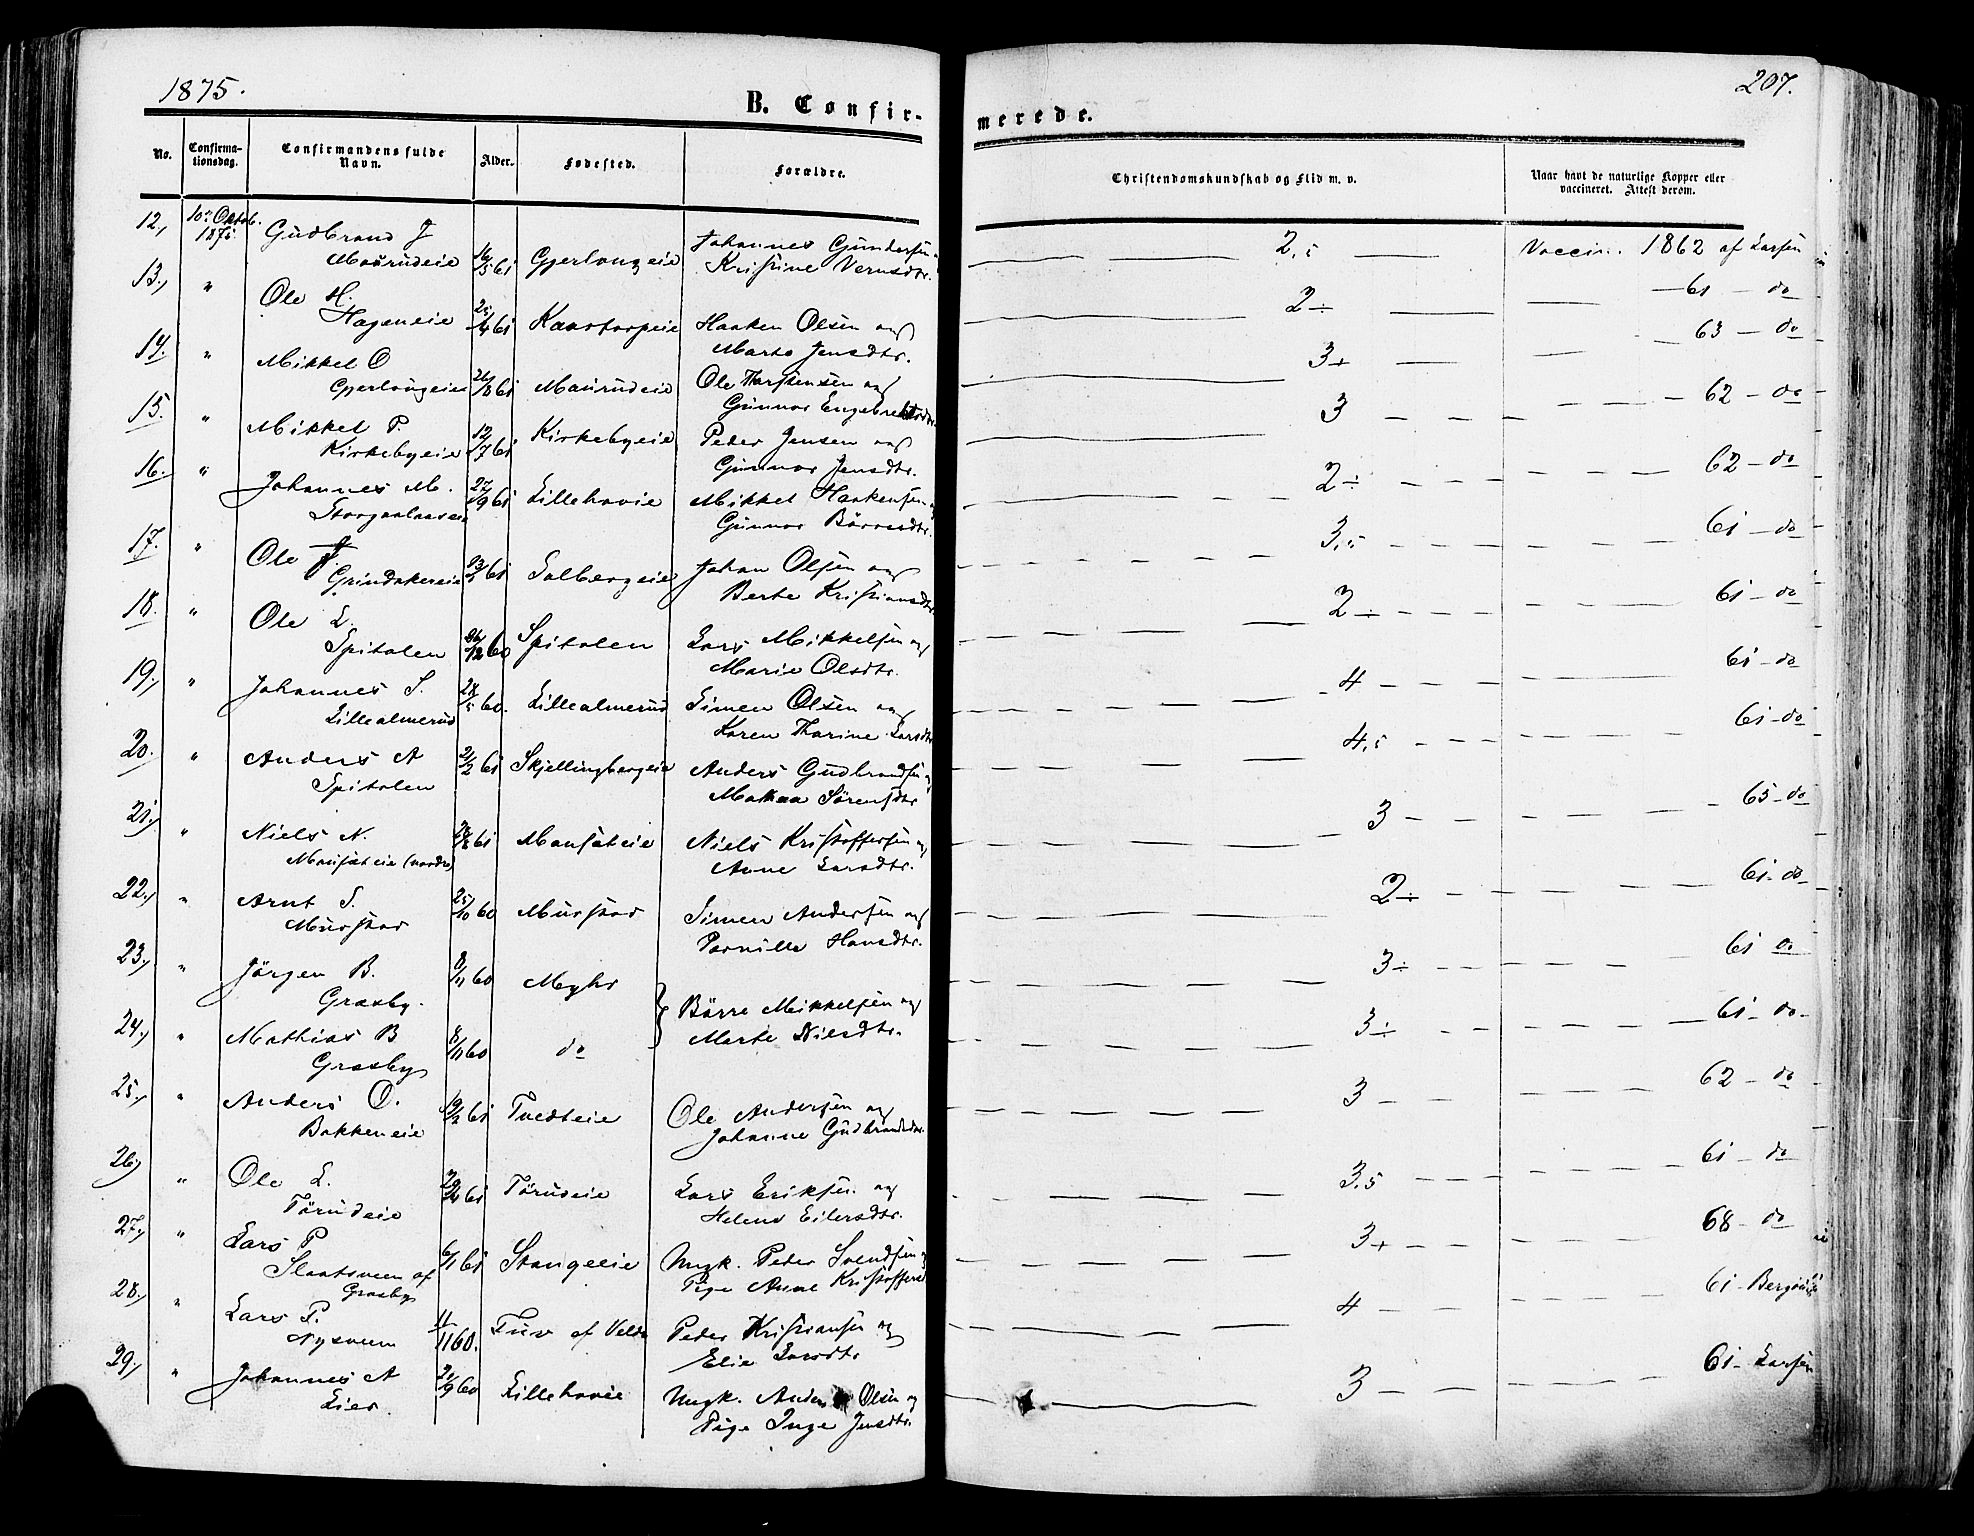 1875.
207.
B. Confir-
merede.
No.
Confirma-
tionsdag.
Confirmandens fulde
Navn.
Alder.
Fødested.
Forældre.
Christendomskundskab og Flid m. v.
Naar havt de naturlige Kopper eller
vaccineret. Attest derom.
12, 10de Oktob. Gudbrand J Johannes Gundersen 2,5 Vaccin. 1862 af Larsen
1875. Maurudeie 16/5 61 Gjerlaugeie Kristine Verusdtr.
13, " Ole H. 2÷ 61 – do
Hageneie 25/4 61 Kaastorpeie Haaken Olsen og
Marte Jensdtr.
14. " Mikkel O 3+ 63 – do
Gjerlaugeie 26/8 61 Maurudeie Ole Thorstensen og
Gunnor Engebretsdtr
15. " Mikkel P. 3 62 – do
Kirkebyeie 12/7 61 Kirkebyeie Peder Jensen og
Gunnor Jensdtr.
16. " Johannes M. 27/9 61 Lillehovie Mikkel Haakensen 2÷ 62 – do
Gunnor Börresdtr.
17. " Ole J. 3,5 61 – do
Grindakereie 61 Solbergeie Johan Olsen og
Berte Kristiansdtr
18. " Ole L. 2÷ 61 – do
Spitalen 26/12 60 Spitalen Lars Mikkelsen og
Marie Olsdtr.
19, " Johannes S. 28/5 60. Lillealmerud Simen Olsen og 4 61 – do
Lillealmerud Karen Thorine Larsdtr
20. " Anders A 21/2 61 Skjellingbergeie Anders Gudbrandsen 4,5 61 – do
Spitalen Mathea Sörensdtr
21, " Niels N. 28/8 61 Mousäteie Niels Kristoffersen og 3 65 – do
Mousäteie (nordre) Anne Larsdtr.
22, " Arnt S. 25/10 60 Murstar Simen Andersen og 2÷ 61 – do
Murstar Pernille Hansdtr.
23, " Jörgen B. 8/11 60 Myhr 3÷ 61 do
Grasby. Börre Mikkelsen og
24, " Mathias B 8/11 60 do Marte Nilsdtr. 3÷ 61 – do
Grasby
25, " Anders O. 19/2 61 Tvedteie Ole Andersen og 3 62 – do
Bakkeneie Johanne Gudbrandsdtr.
26, " Ole L. 20/4 61 Törudeie Lars Eriksen og 3,5 61 – do
Törudeie Helene Eilersdtr.
27, " Lars P 6/1 61 Stangeeie Ungk. Peder Svendsen 3+ 68 – do
Slaatsveen af Pige Anne Kristoffersd
Grasby
28, " Lars P. 11/11 60. Tuv af Velde Peder Kristiansen og 4 61 –
Nysveen Elie Larsdtr
29, " Johannes A 20/9 60 Lillehovie Ungk. Anders Olsen og 3 61 – Larsen
Lier. Pige Inge Jensdtr.